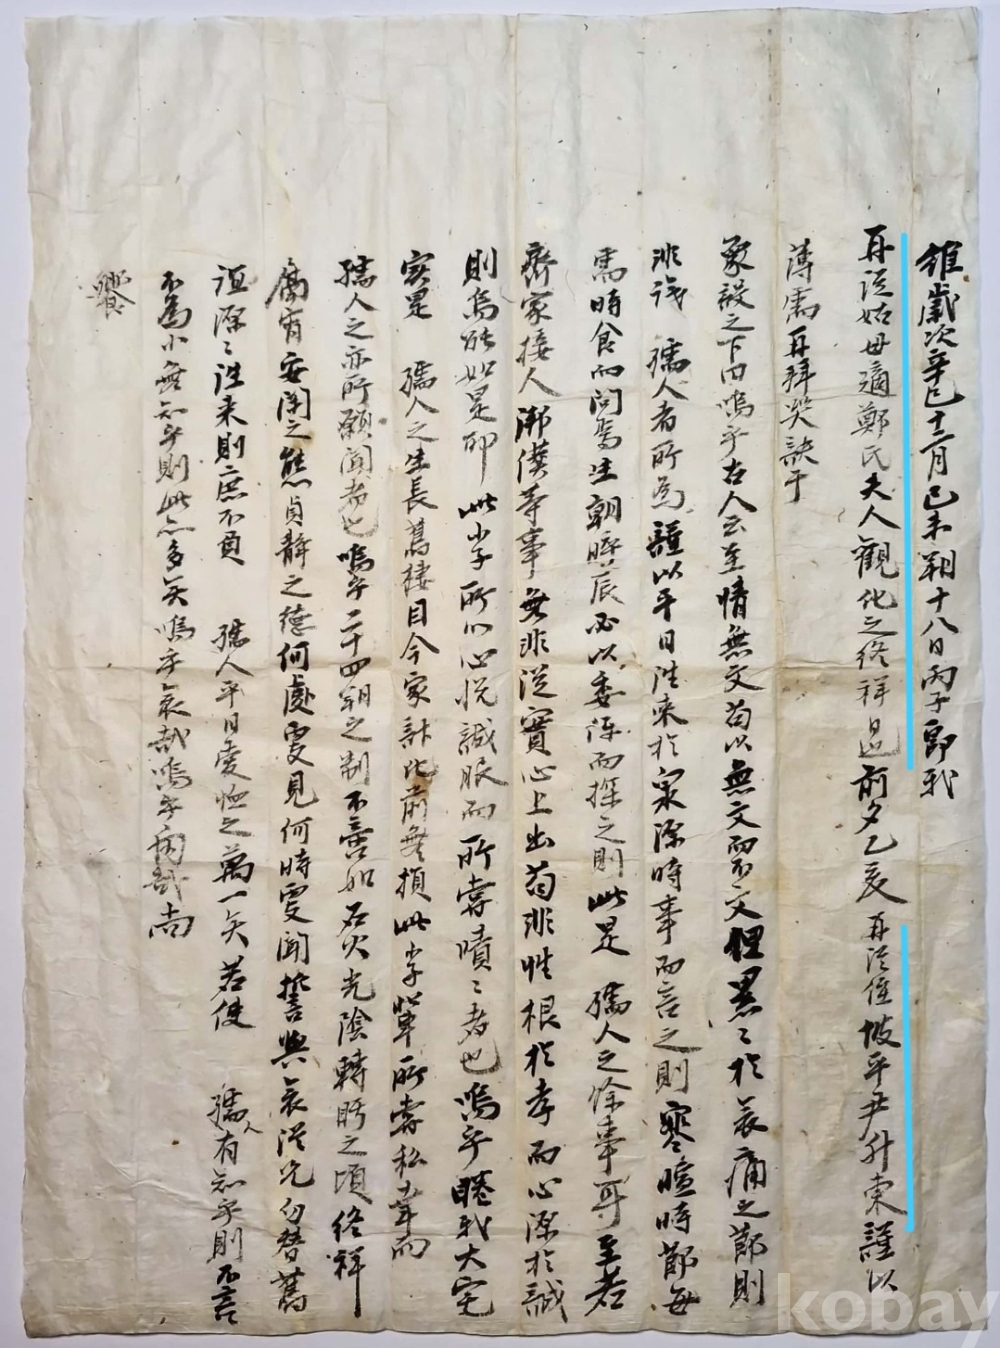 維歲次辛巳十二月己未朔十八日丙子卽我
再從姑母適鄭氏夫人觀化之終祥日也前夕乙亥再從侄坡平尹升東謹以
薄需再拜哭訣于
象設之下曰嗚乎古人云至情無文苟以無文而不文但累〻於哀痛之節則
非誠 孺人者所爲謹以平日往來於衆深時事而言之則寒暄時節每
需時食而問焉生朝晬辰必以委海而探之則此是 孺人之餘事耳至若
齊家接人御僕等事無非從實心上出苟非性根於孝而心深於誠
則焉能如是耶此小子所以心悅誠服而所嘗嘖〻者也嗚乎睠我大宅
實是 孺人之生長舊棲目今家計比前無損此小子輩所嘗私幸而
孺人之亦所願聞者也嗚乎二十四朔之制不啻如石火光陰轉眄之頃終祥
腐宥安閑之態貞靜之德何處更見何時更聞誓與哀從兄勿替舊
誼源〻往來則庶不負 孺人平日愛恤之萬一矣若使 孺人有知乎則不言
不爲小無知乎則此亦多矣嗚乎哀哉嗚乎痛哉尚
饗
kobay